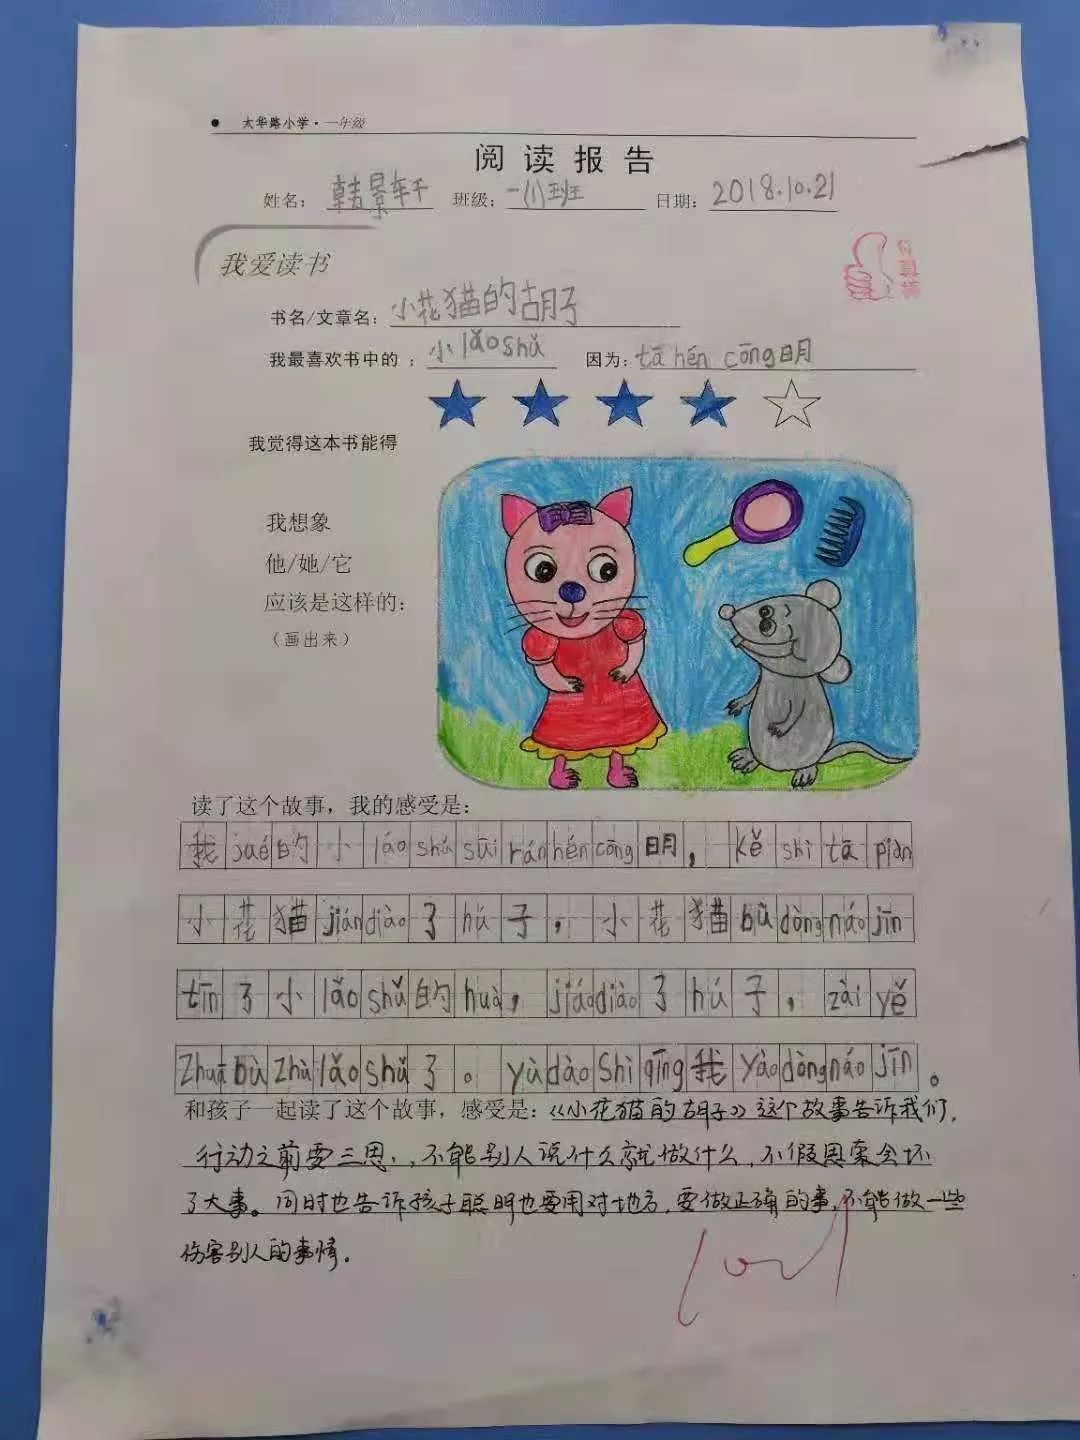 太华路小学·一年级
阅读报告
姓名: 韩景轩 班级: 一(1)班 日期: 2018.10.21
我爱读书
你真棒
书名/文章名: 小花猫的胡子
我最喜欢书中的: 小lǎoshǔ 因为: tā hén cōng明
我觉得这本书能得
我想象
他/她/它
应该是这样的:
(画出来)
读了这个故事，我的感受是:
我jué的小láoshǔsūiránhéncōng明，kěshìtāpiàn
小花猫jiándiào了hú子，小花猫bùdòngnáojīn
tīn了小lǎoshǔ的huà，jiáodiào了hú子，zàiyě
Zhuābùzhùlǎoshǔ了。yùdàoshìqīng我yàodòngnáojīn。
和孩子一起读了这个故事，感受是:《小花猫的胡子》这个故事告诉我们，
行动之前要三思，不能别人说什么就做什么，不假思索会坏
了大事。同时也告诉孩子聪明也要用对地方，要做正确的事，不能做一些
伤害别人的事情。